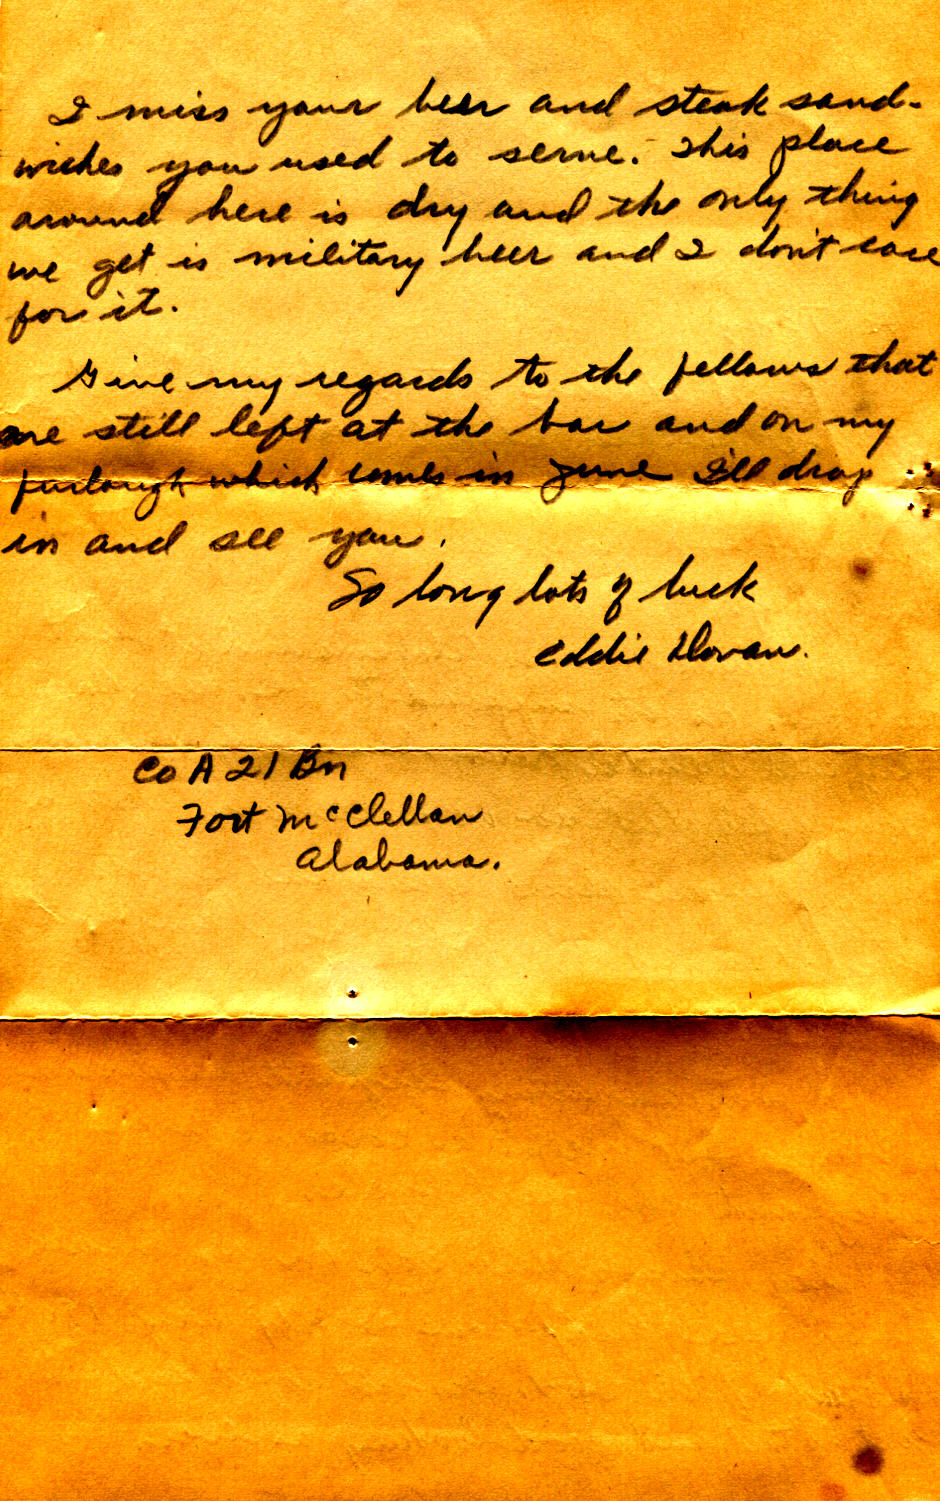 I miss your beer and steak sand-
wiches you used to serve. This place
around here is dry and the only thing
we get is military beer and I don't care
for it.
Give my regards to the fellows that
are still left at the bar and on my
furlough which comes in June I'll drop
in and see you.
So long lots of luck
Eddie
Co A 21 Bn
Fort McClellan
Alabama.